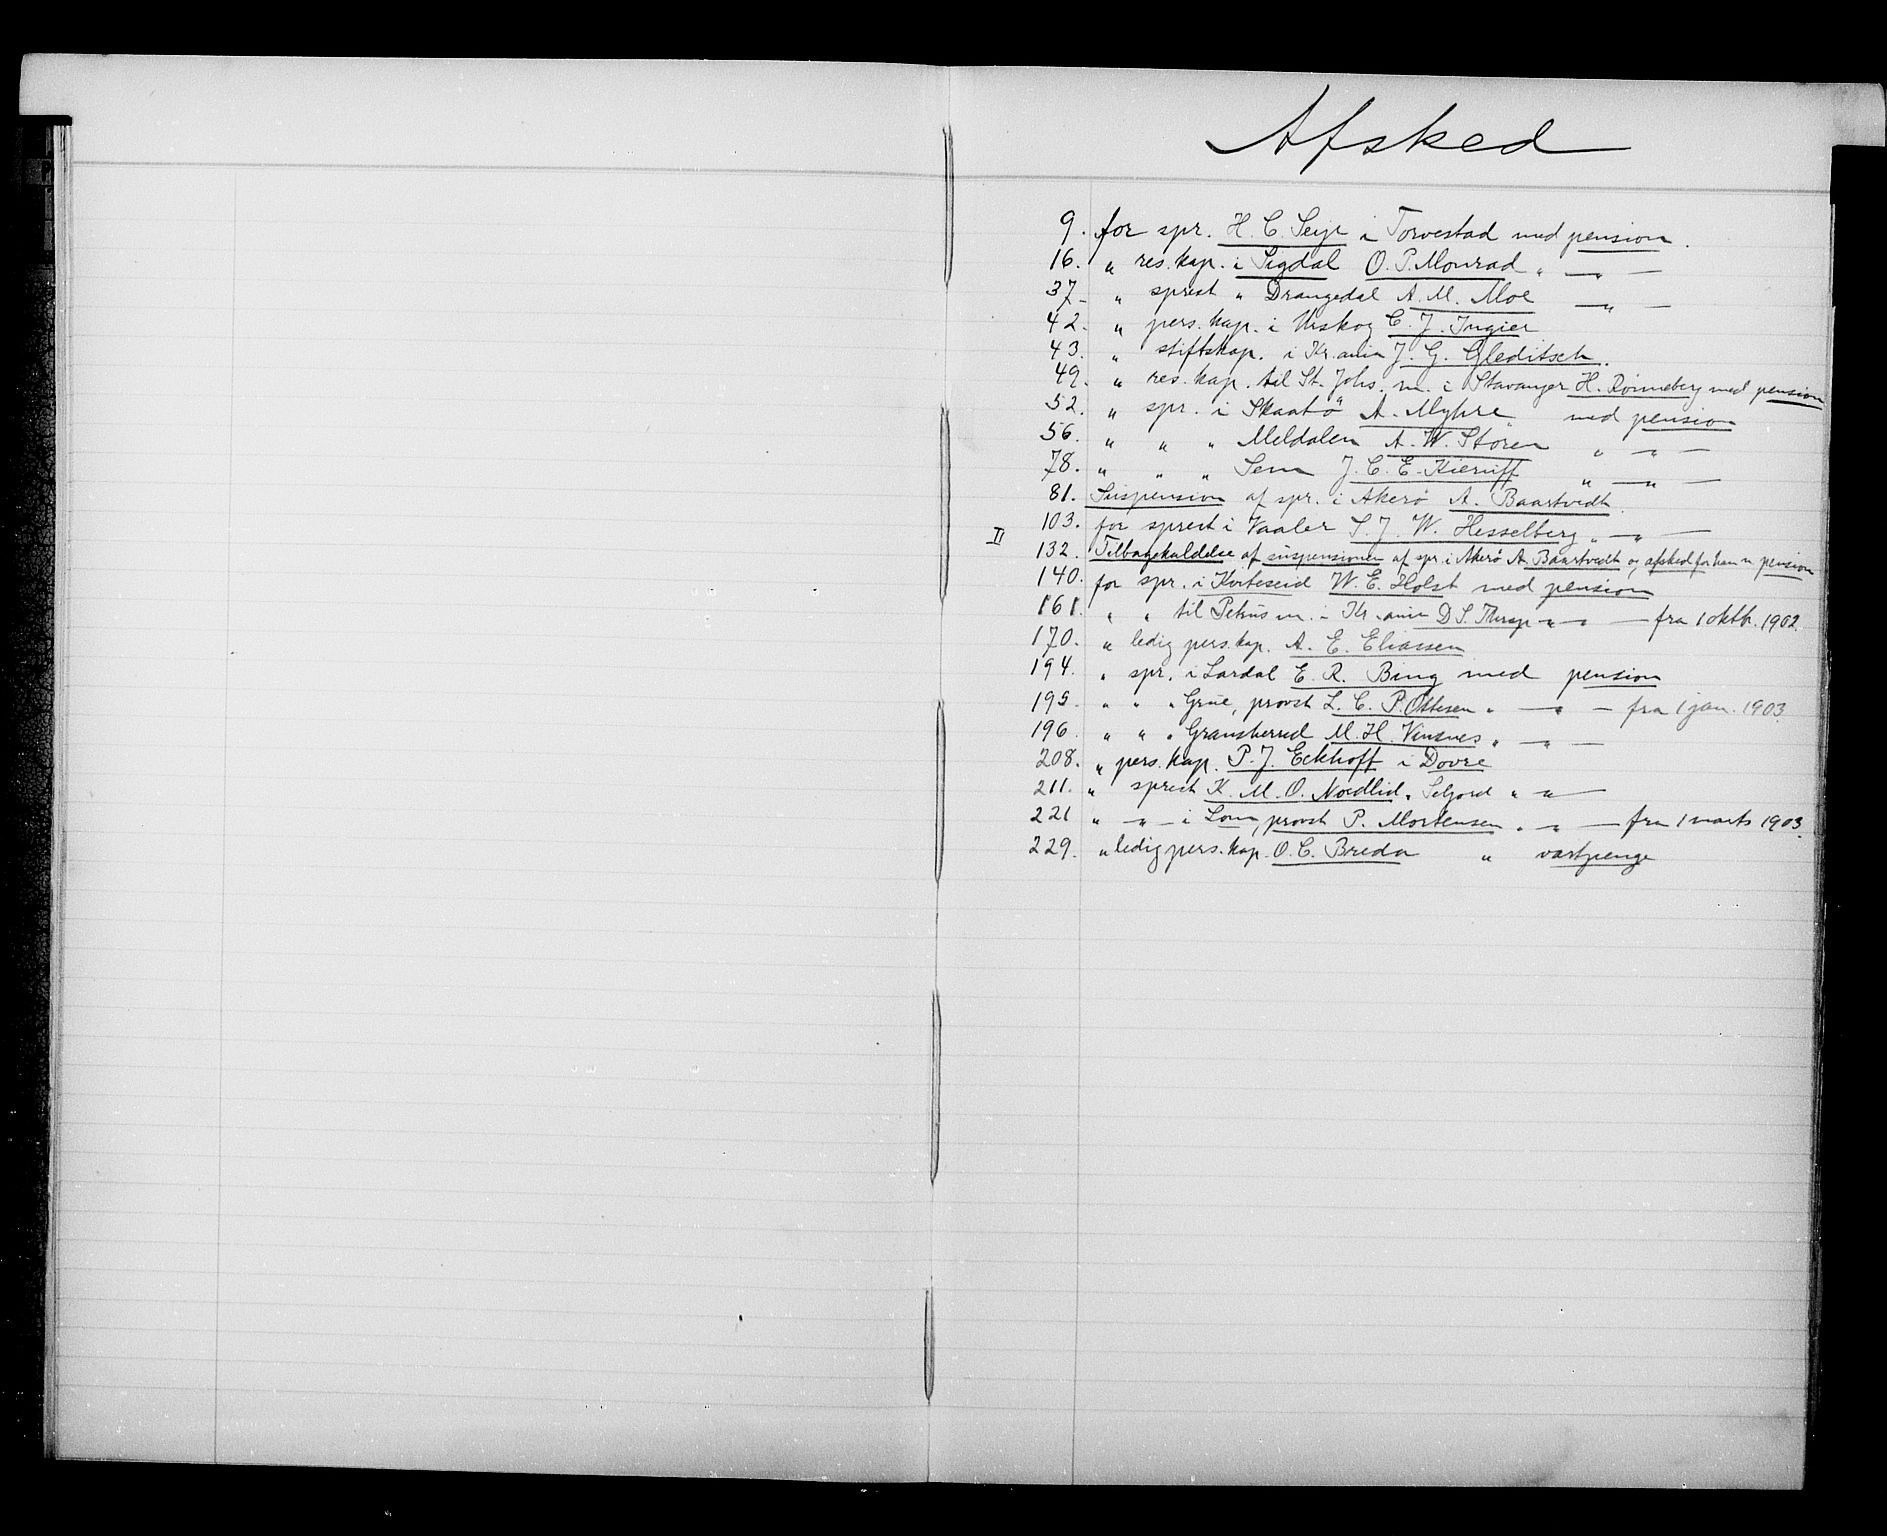 Afsked
9. for spr. H. C. Seip i Torvestad med pension.
16. " res. kap. i Sigdal O. P. Monrad " — " —
37. " sprest " Drangedal A. M. Moe — " —
42. " pers. kap. i Urskog C. J. Ingier
43. " stiftskap. i Kr.ania J. G. Gleditsch.
49. " res. kap. til St. Johs. m. i Stavanger H. Rønneberg med pension
52. " spr. i Skaatö A. Myhre med pension
56. " " " Meldalen A. W. Støren " — " —
78. " " " Sem J. C. E. Kierulff " — " —
81. Suspension af spr. i Akerø A. Baartvedt.
103. for sprest i Vaaler S. J. W. Hesselberg " — " —
II 132. Tilbagekaldelse af suspensionen af spr. i Akerø A. Baartvedt og afsked for ham m. pension
140. for spr. i Kviteseid W. E. Holst med pension
161. " " til Petrus m. i Kr.ania D. S. Thrap " — " — fra 1 oktb. 1902.
170. " ledig pers. kap. A. E. Eliassen
194. " spr. i Lardal E. R. Bing med pension
195. " " " Grue, provst L. C. P. Ottesen " — " — fra 1 jan. 1903
196. " " " Gransherred M. H. Vinsnes " — " —
208. " pers. kap. P. J. Eckhoff i Dovre
211. " sprest K. M. O. Nordlid " Seljord " — " —
221 " — " — i Lom, provst P. Mortensen " — " — fra 1 marts 1903.
229. " ledig pers. kap. O. C. Breda " vartpenge